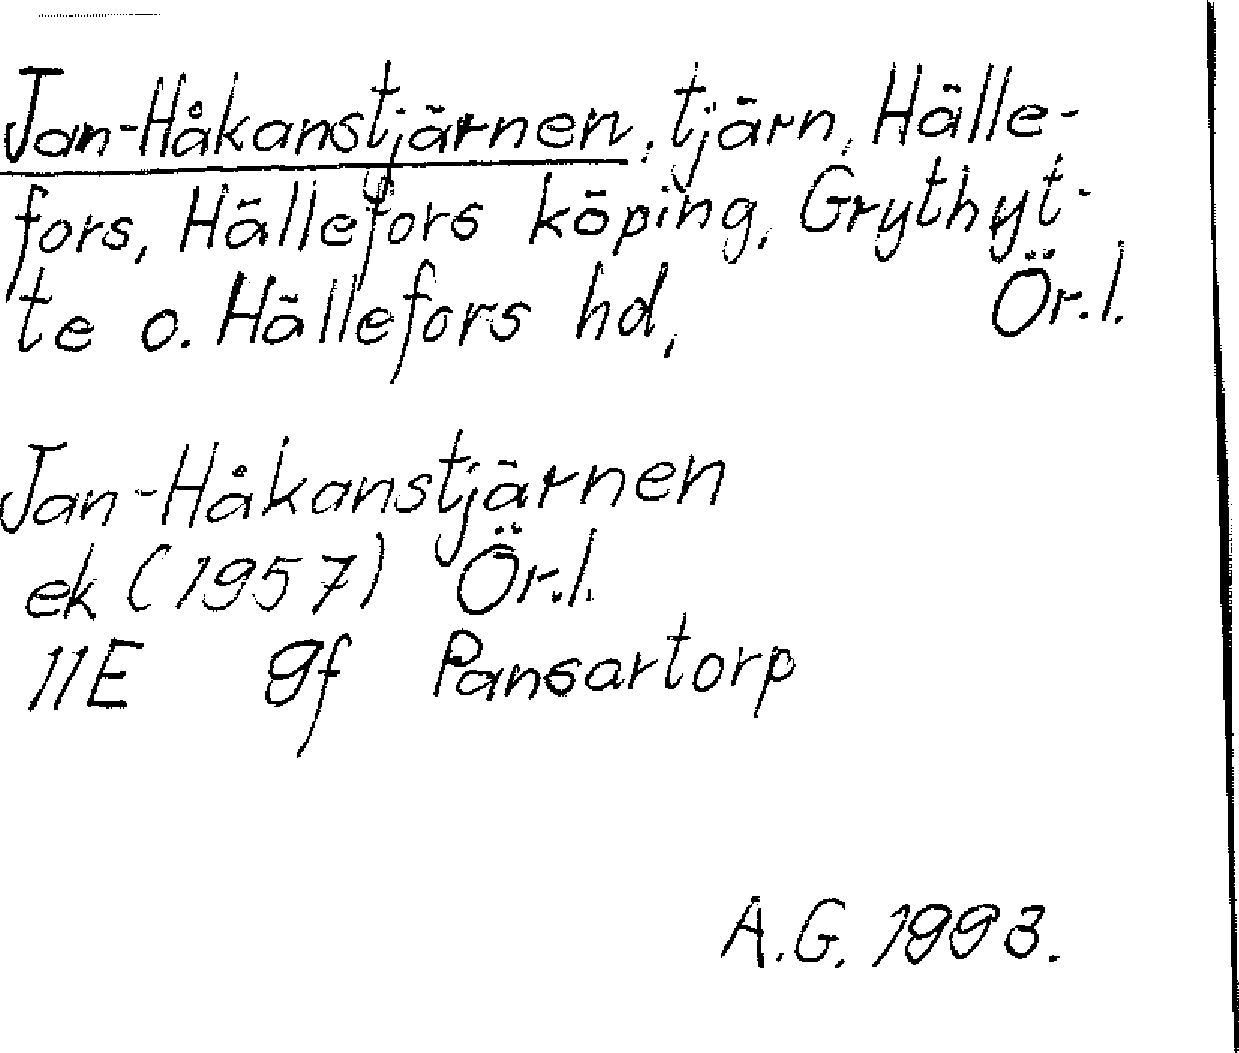 Jan-Håkanstjärnen, tjärn, Hälle-
fors, Hällefors köping, Grythyt-
te o. Hällefors hd, Ör.l.
Jan-Håkanstjärnen
ek (1957) Ör.l.
11E 9f Pansartorp
A.G. 1993.